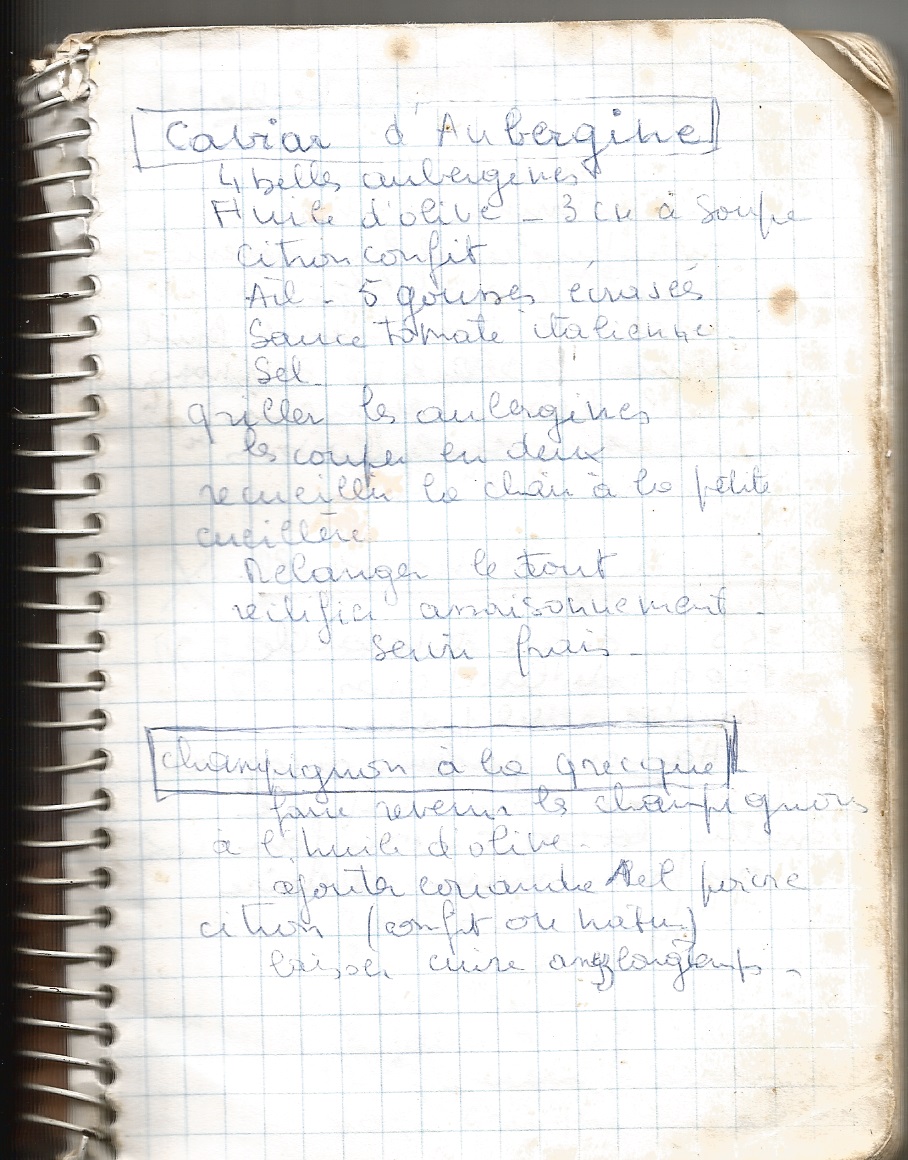 Caviar d'Aubergine
4 belles aubergines
Huile d'olive - 3 cu à soupe
citron confit
Ail - 5 gousses écrasées
Sauce tomate italienne.
Sel.
griller les aubergines
les couper en deux
recueillir la chair à la petite
cueillère
Mélanger le tout
vérifier assaisonnement.
Servir frais -
champignon à la grecque
faire revenir les champignons
à l'huile d'olive.
ajouter coriandre sel poivre
citron (confit ou nature)
laisser cuire assez longtemps -